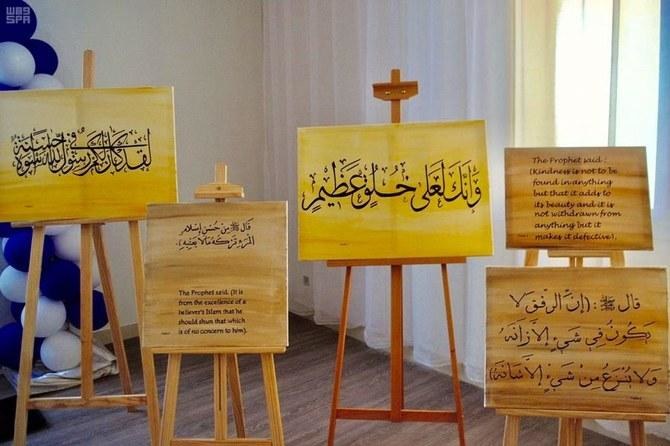 SPA
لقد كان لكم في رسول الله أسوة حسنة
وَإِنَّكَ لَعَلَى خُلُقٍ عَظِيمٍ
قال ﷺ (من حُسْن إسلام
المرء تركه ما لا يعنيه).
The Prophet said. (It is
from the excellence of a
believer's Islam that he
should shun that which
is of no concern to him).
The Prophet said :
(Kindness is not to be
found in anything
but that it adds to
its beauty and it is
not withdrawn from
anything but it
makes it defective).
قال ﷺ : (إنَّ الرفق لا
يكون في شيءٍ إلا زانه
ولا ينزع من شيءٍ إلا شانه)